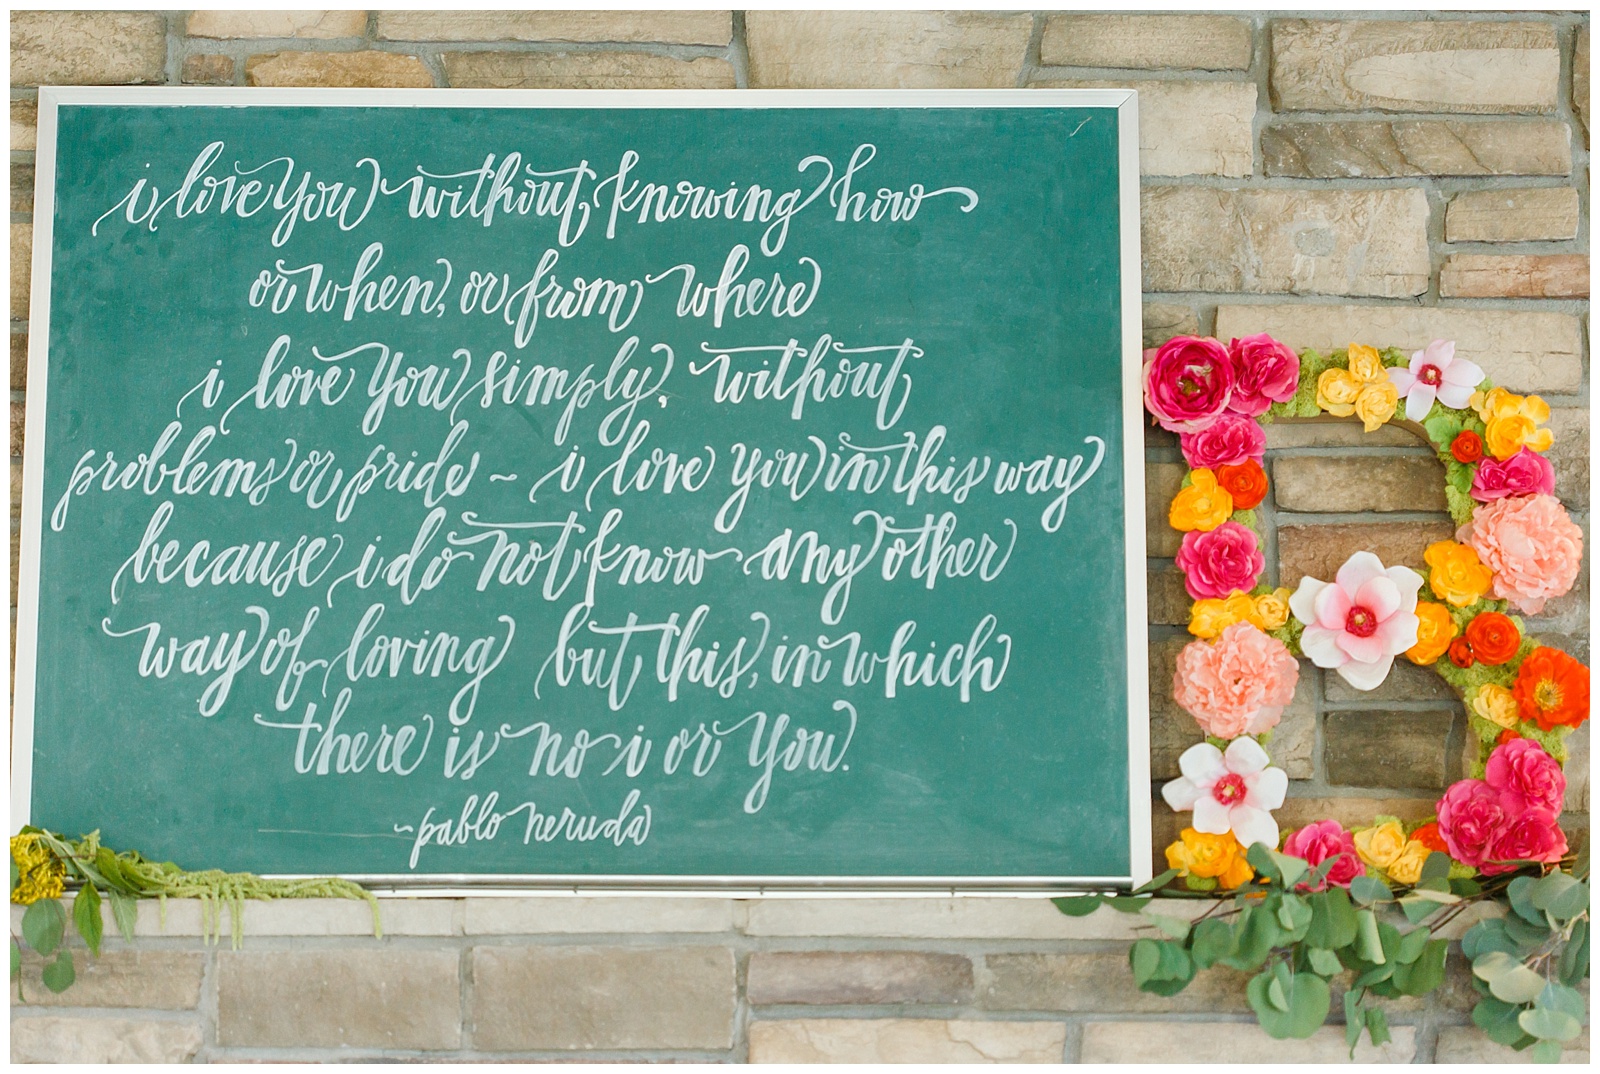 i love you without knowing how
or when, or from where
i love you simply, without
problems or pride ~ i love you in this way
because i do not know any other
way of loving but this, in which
there is no i or you.
~ pablo neruda
B